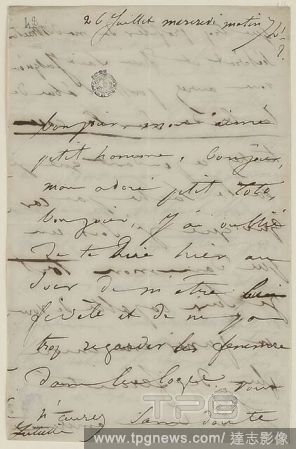 26 juillet mercredi matin 7h ½
bonjour mon aimé
petit homme, bonjour,
mon adoré petit toto,
bonjour, j'ai oublié
de te dire hier au
soir de m'être
fidèle et de ne pas
trop regarder les femmes
dans les loges. Vous
n'aurez sans doute
TPG
www.tpgnews.com/達志影像